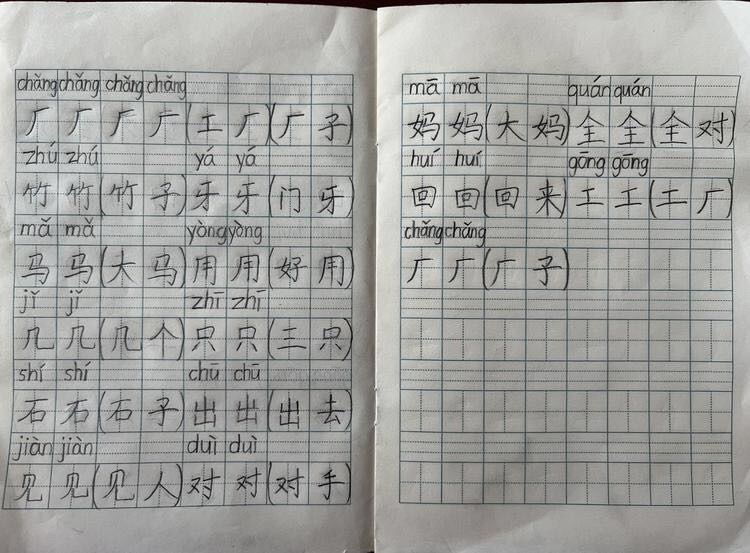 chǎng chǎng chǎng chǎng
厂 厂 厂 厂 (土 厂) (厂 子)
zhú zhú yá yá
竹 竹 (竹 子) 牙 牙 (门 牙)
mǎ mǎ yòng yòng
马 马 (大 马) 用 用 (好 用)
jǐ jǐ zhī zhī
几 几 (几 个) 只 只 (三 只)
shí shí chū chū
石 石 (石 子) 出 出 (出 去)
jiàn jiàn duì duì
见 见 (见 人) 对 对 (对 手)
mā mā quán quán
妈 妈 (大 妈) 全 全 (全 对)
huí huí gōng gōng
回 回 (回 来) 工 工 (工 厂)
chǎng chǎng
厂 厂 (厂 子)